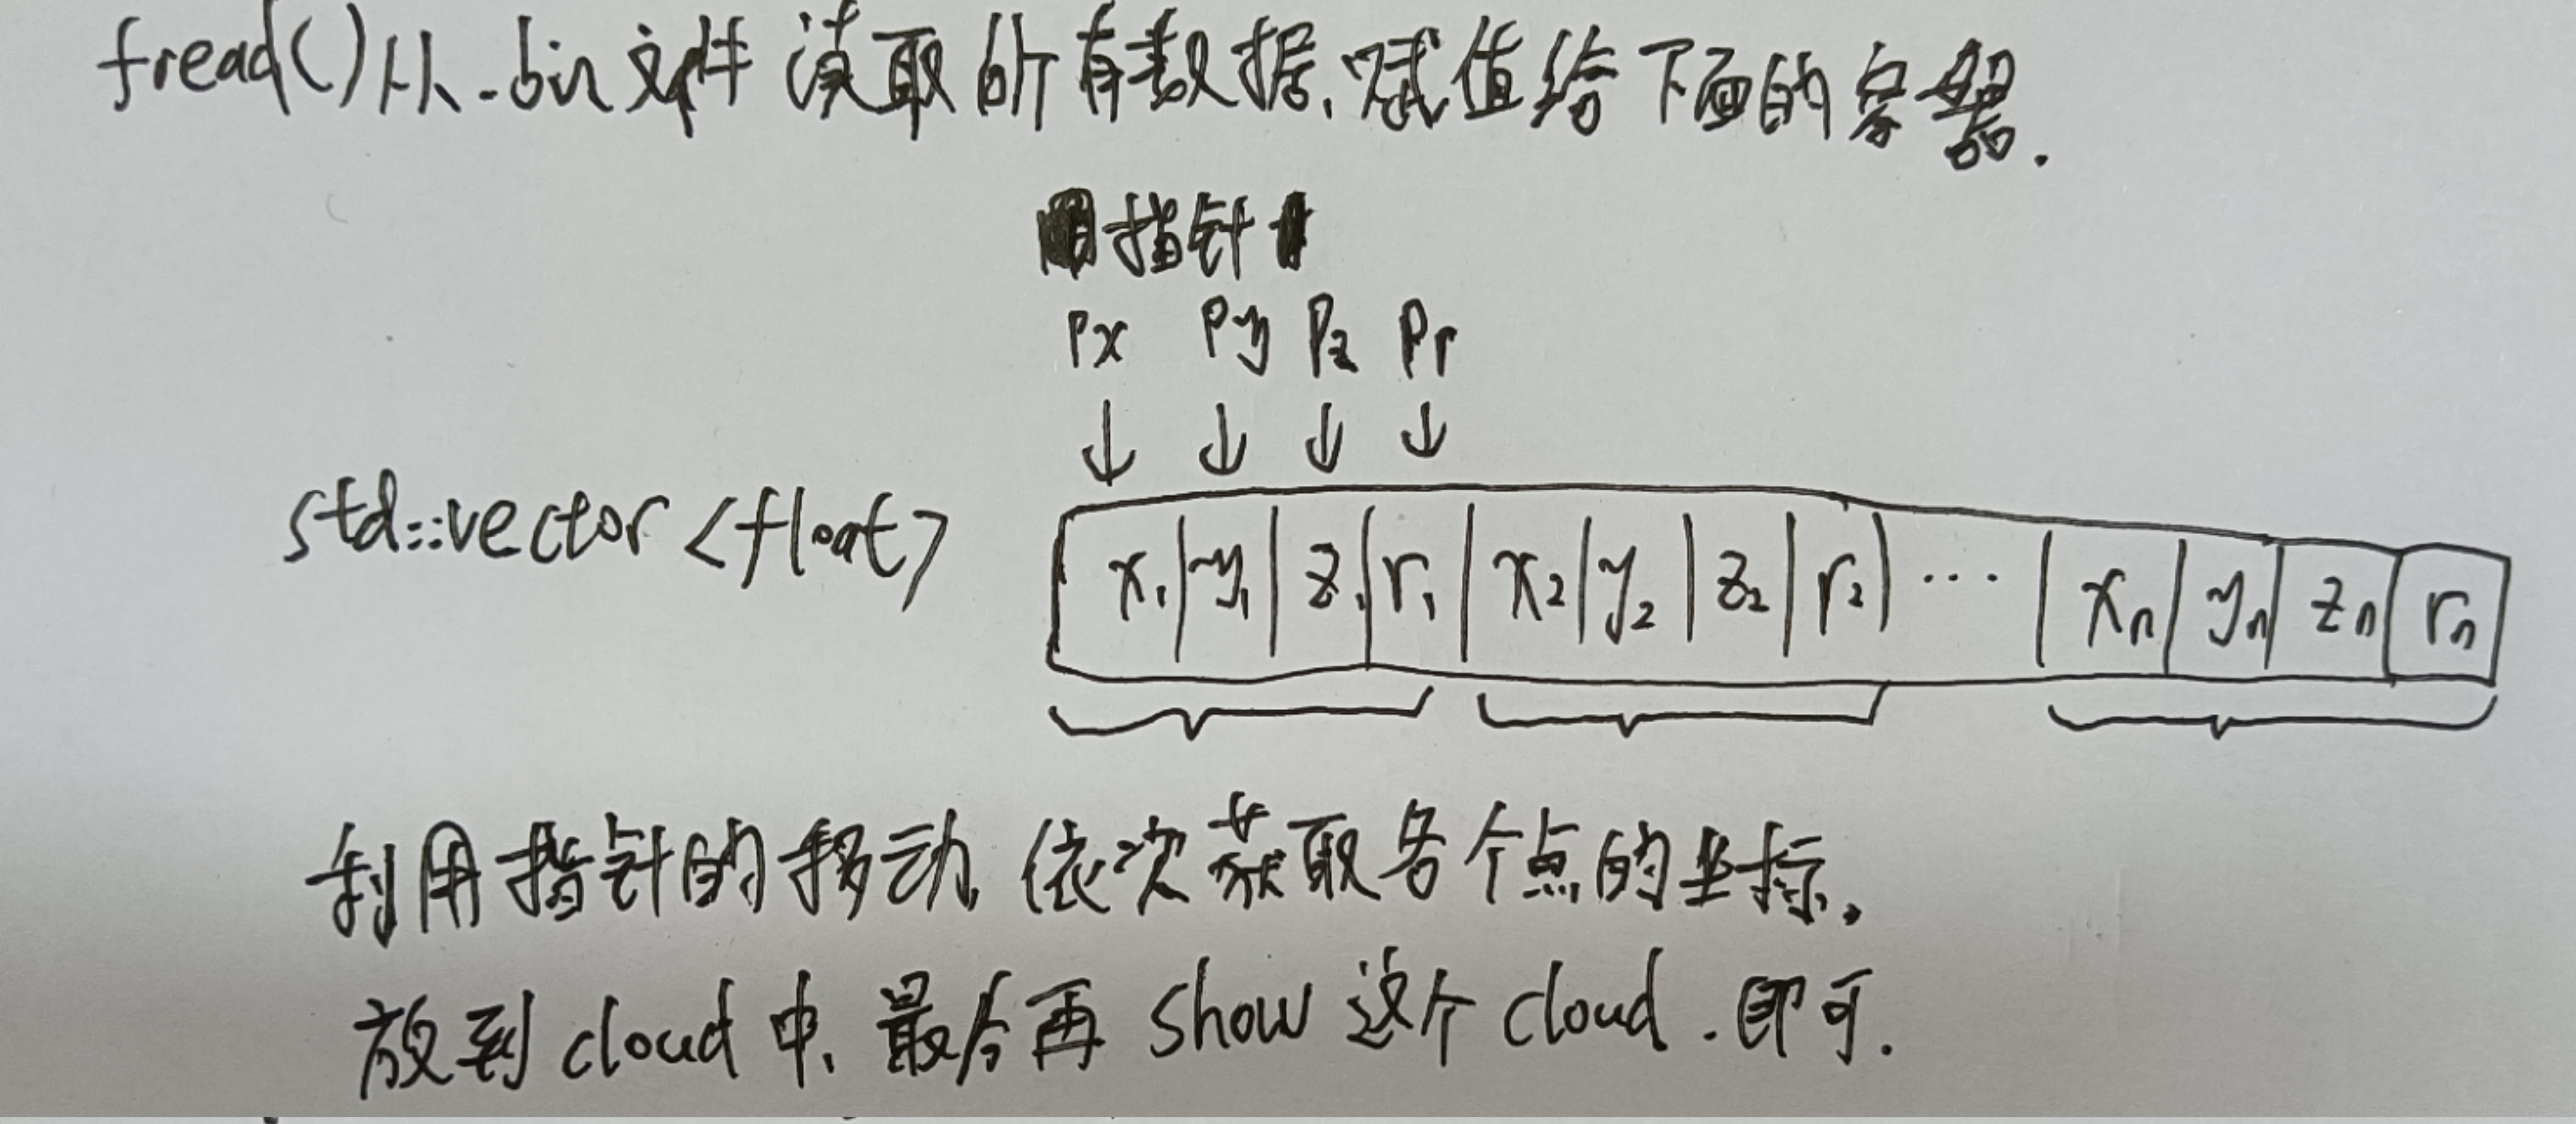 fread()从.bin文件读取所有数据,赋值给下面的容器.
指针
Px Py Pz Pr
↓ ↓ ↓ ↓
std::vector<float> x₁|y₁|z₁|r₁|x₂|y₂|z₂|r₂|...|xₙ|yₙ|zₙ|rₙ
利用指针的移动,依次获取各个点的坐标。
放到cloud中,最后再show这个cloud.即可.